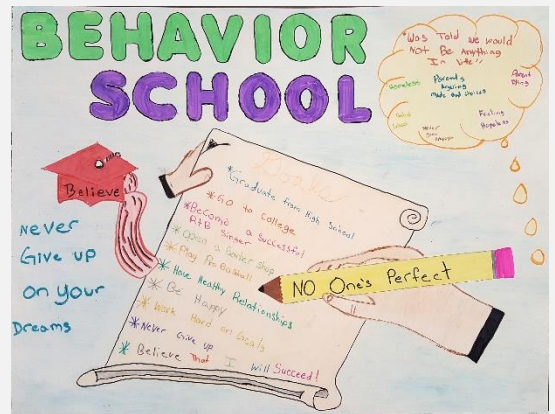 BEHAVIOR
SCHOOL
"Was Told we would
Not Be Anything
In life"
Homeless
Parents
Arguing
Parent
Dying
Feeling
Hopeless
Never
Believe
NEVER
Give up
on your
Dreams
Goals
*Graduate from High School
*GO to College
*Become a Successful
R+B Singer
*Open a Barber shop
*Play Pro Baseball
*Have Healthy Relationships
*Be Happy
*Work Hard on Goals
*Never Give up
*Believe that I will Succeed!
NO One's Perfect